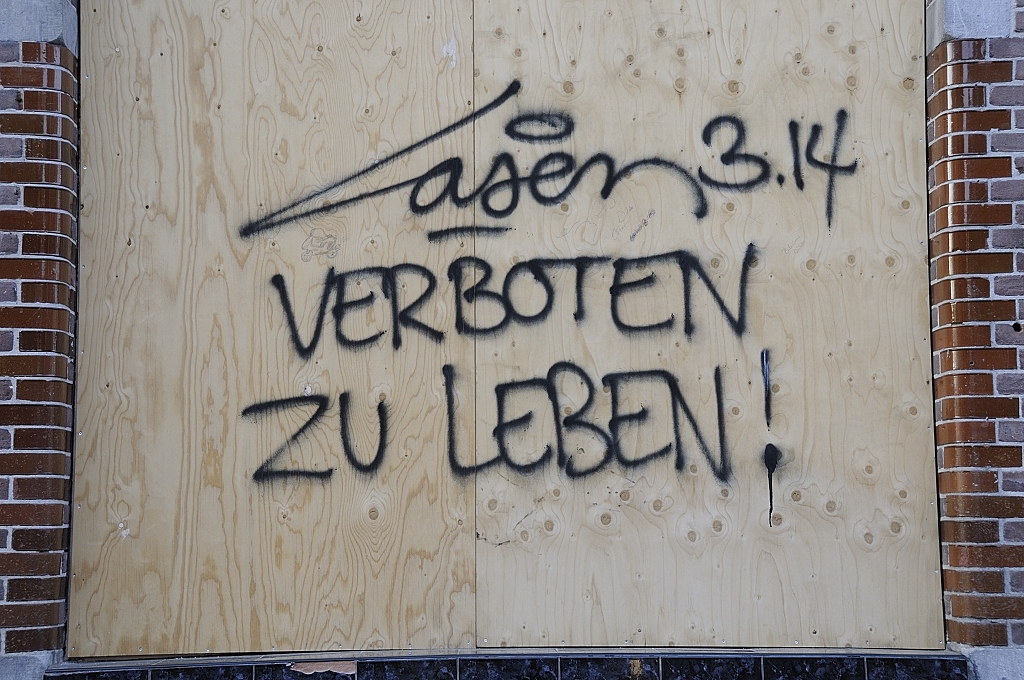 Laser 3.14
VERBOTEN
ZU LEBEN!